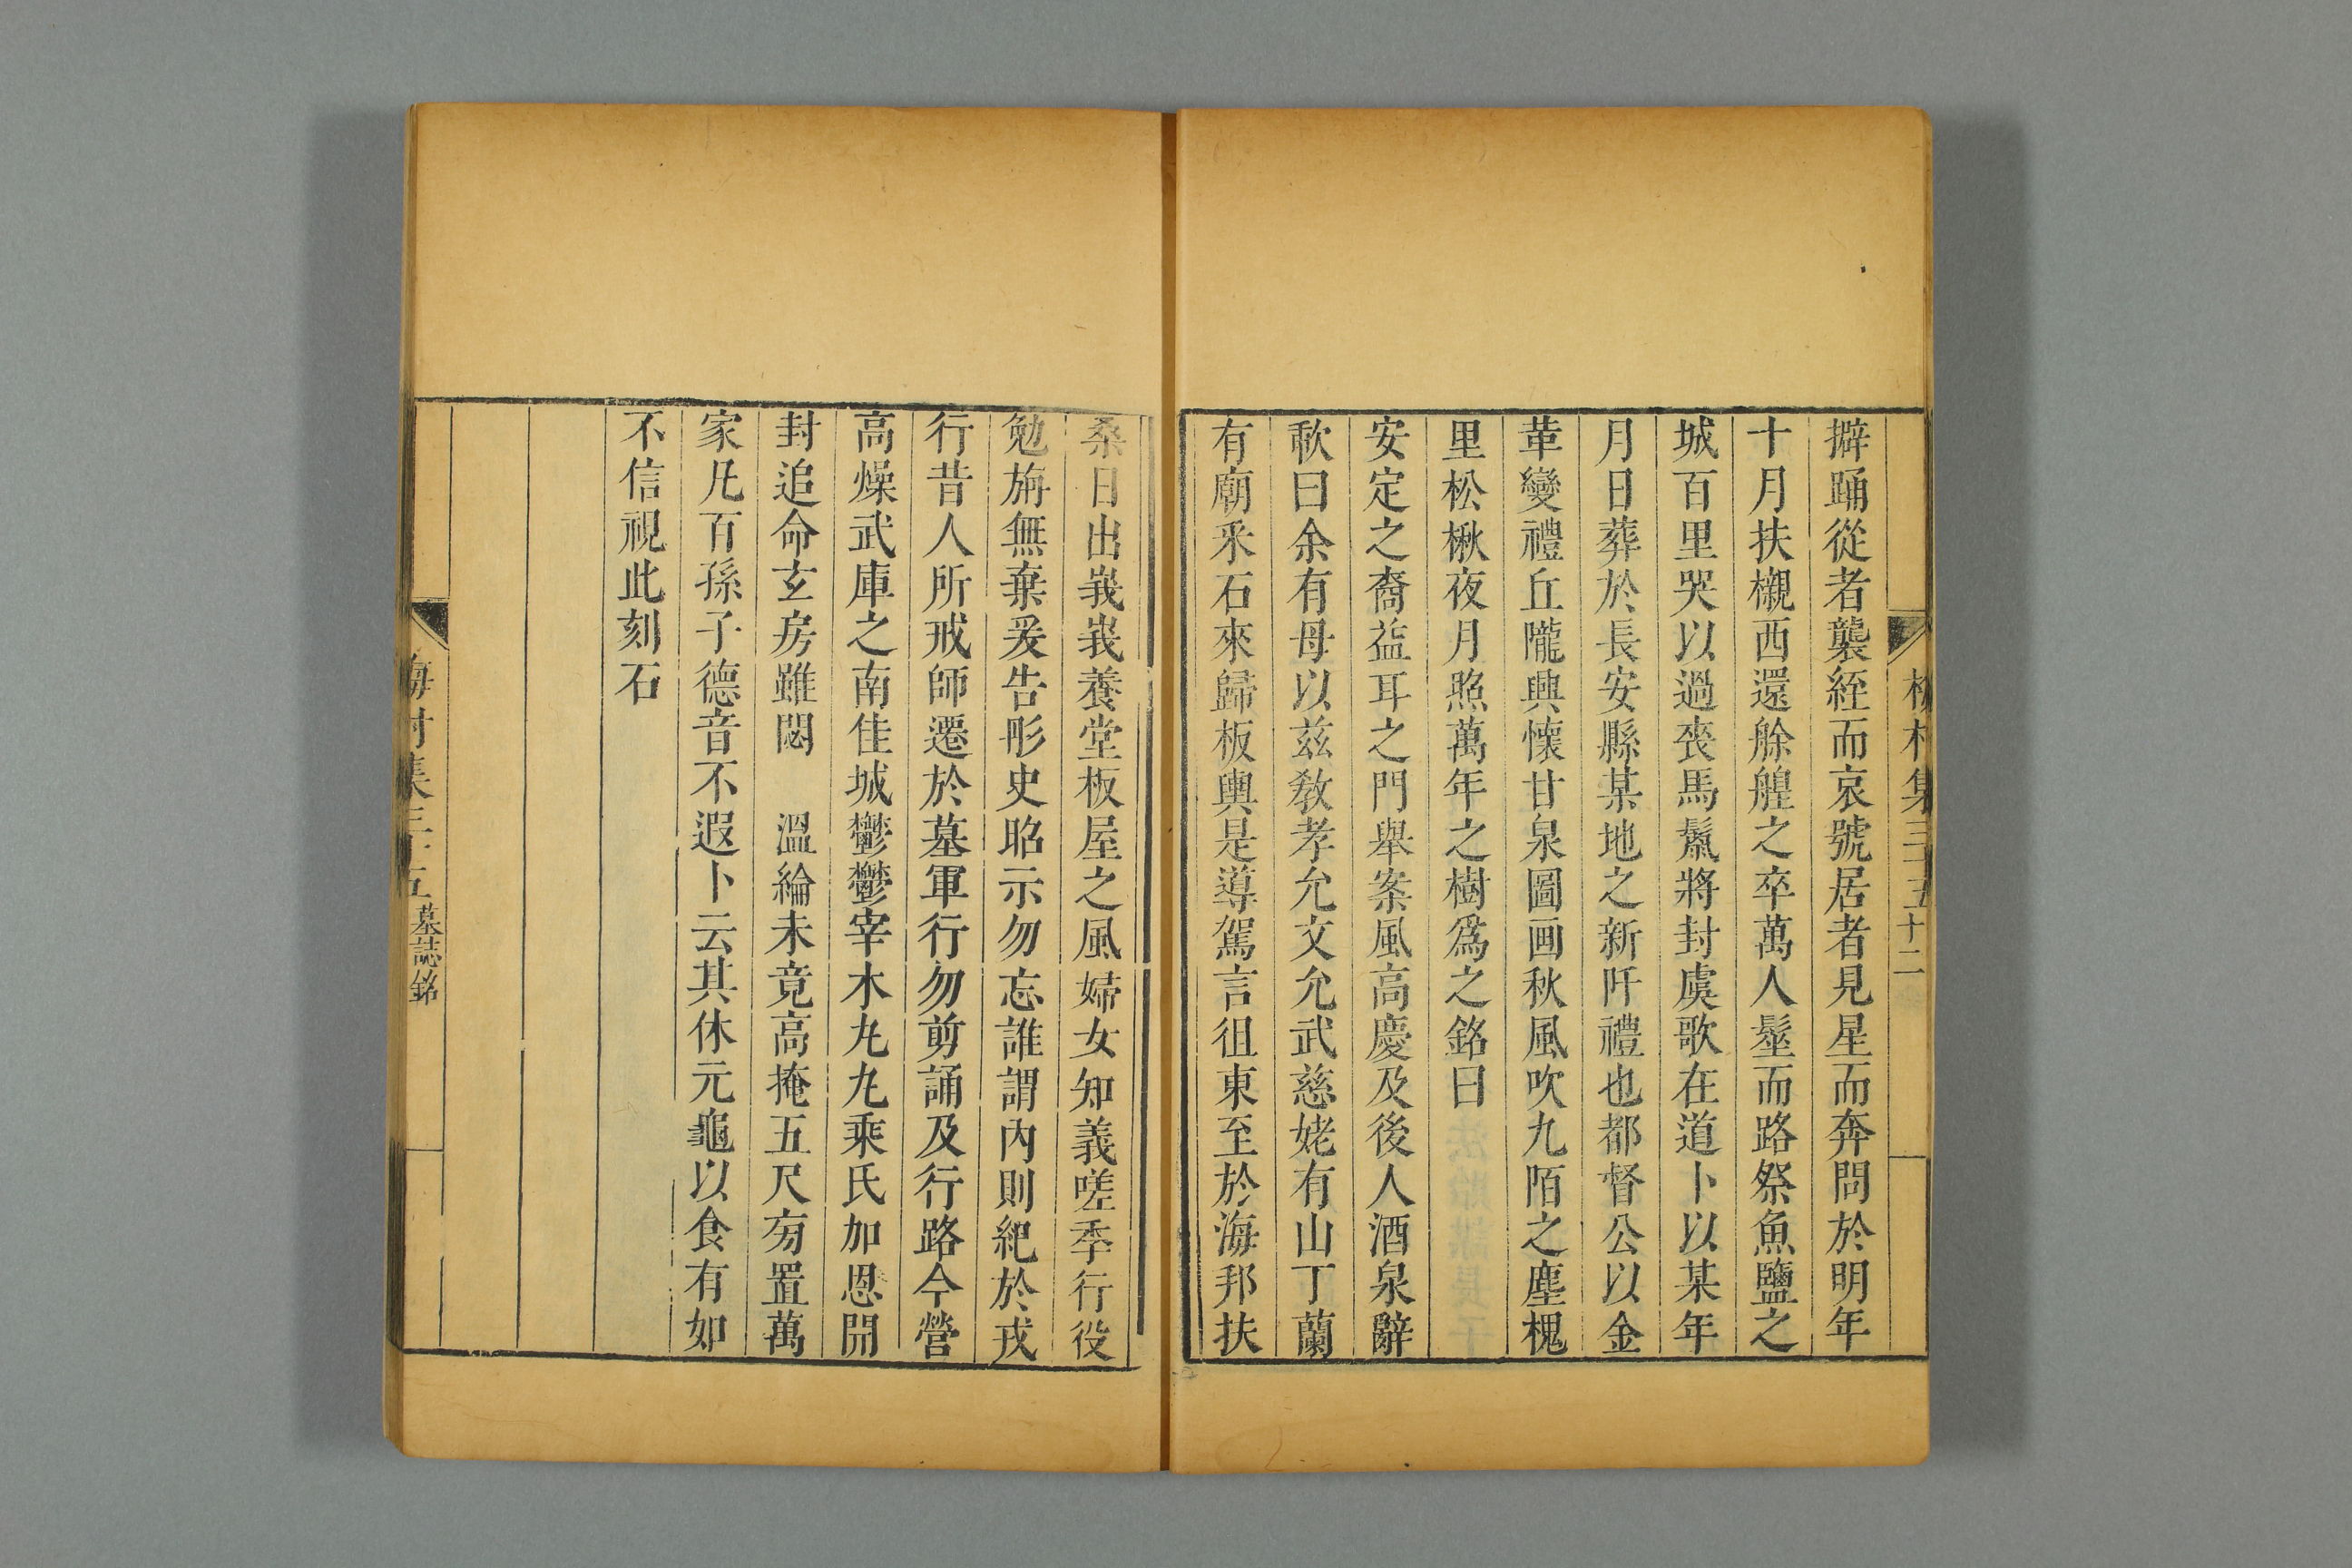 村集三十五 十二
擗踊從者襲絰而哀號居者見星而奔問於明年
十月扶櫬西還艅艎之卒萬人髽而路祭魚鹽之
城百里哭以過喪馬鬣將封虞歌在道卜以某年
月日葬於長安縣某地之新阡禮也都督公以金
革變禮丘隴興懷甘泉圖画秋風吹九陌之塵槐
里松楸夜月照萬年之樹為之銘曰
安定之裔益耳之門舉案風高慶及後人酒泉辭
歌曰余有母以兹教孝允文允武慈姥有山丁蘭
有廟釆石來歸板輿是導駕言徂東至於海邦扶
桑日出峩峩養堂板屋之風婦女知義嗟季行役
勉旃無棄爰告彤史昭示勿忘誰謂內則紀於戎
行昔人所戒師遷於墓軍行勿剪誦及行路今營
高燥武庫之南佳城鬱鬱宰木丸丸乘氏加恩開
封追命玄房雖閟　溫綸未竟高掩五尺旁置萬
家凡百孫子德音不遐卜云其休元龜以食有如
不信視此刻石
村集三十五 墓誌銘